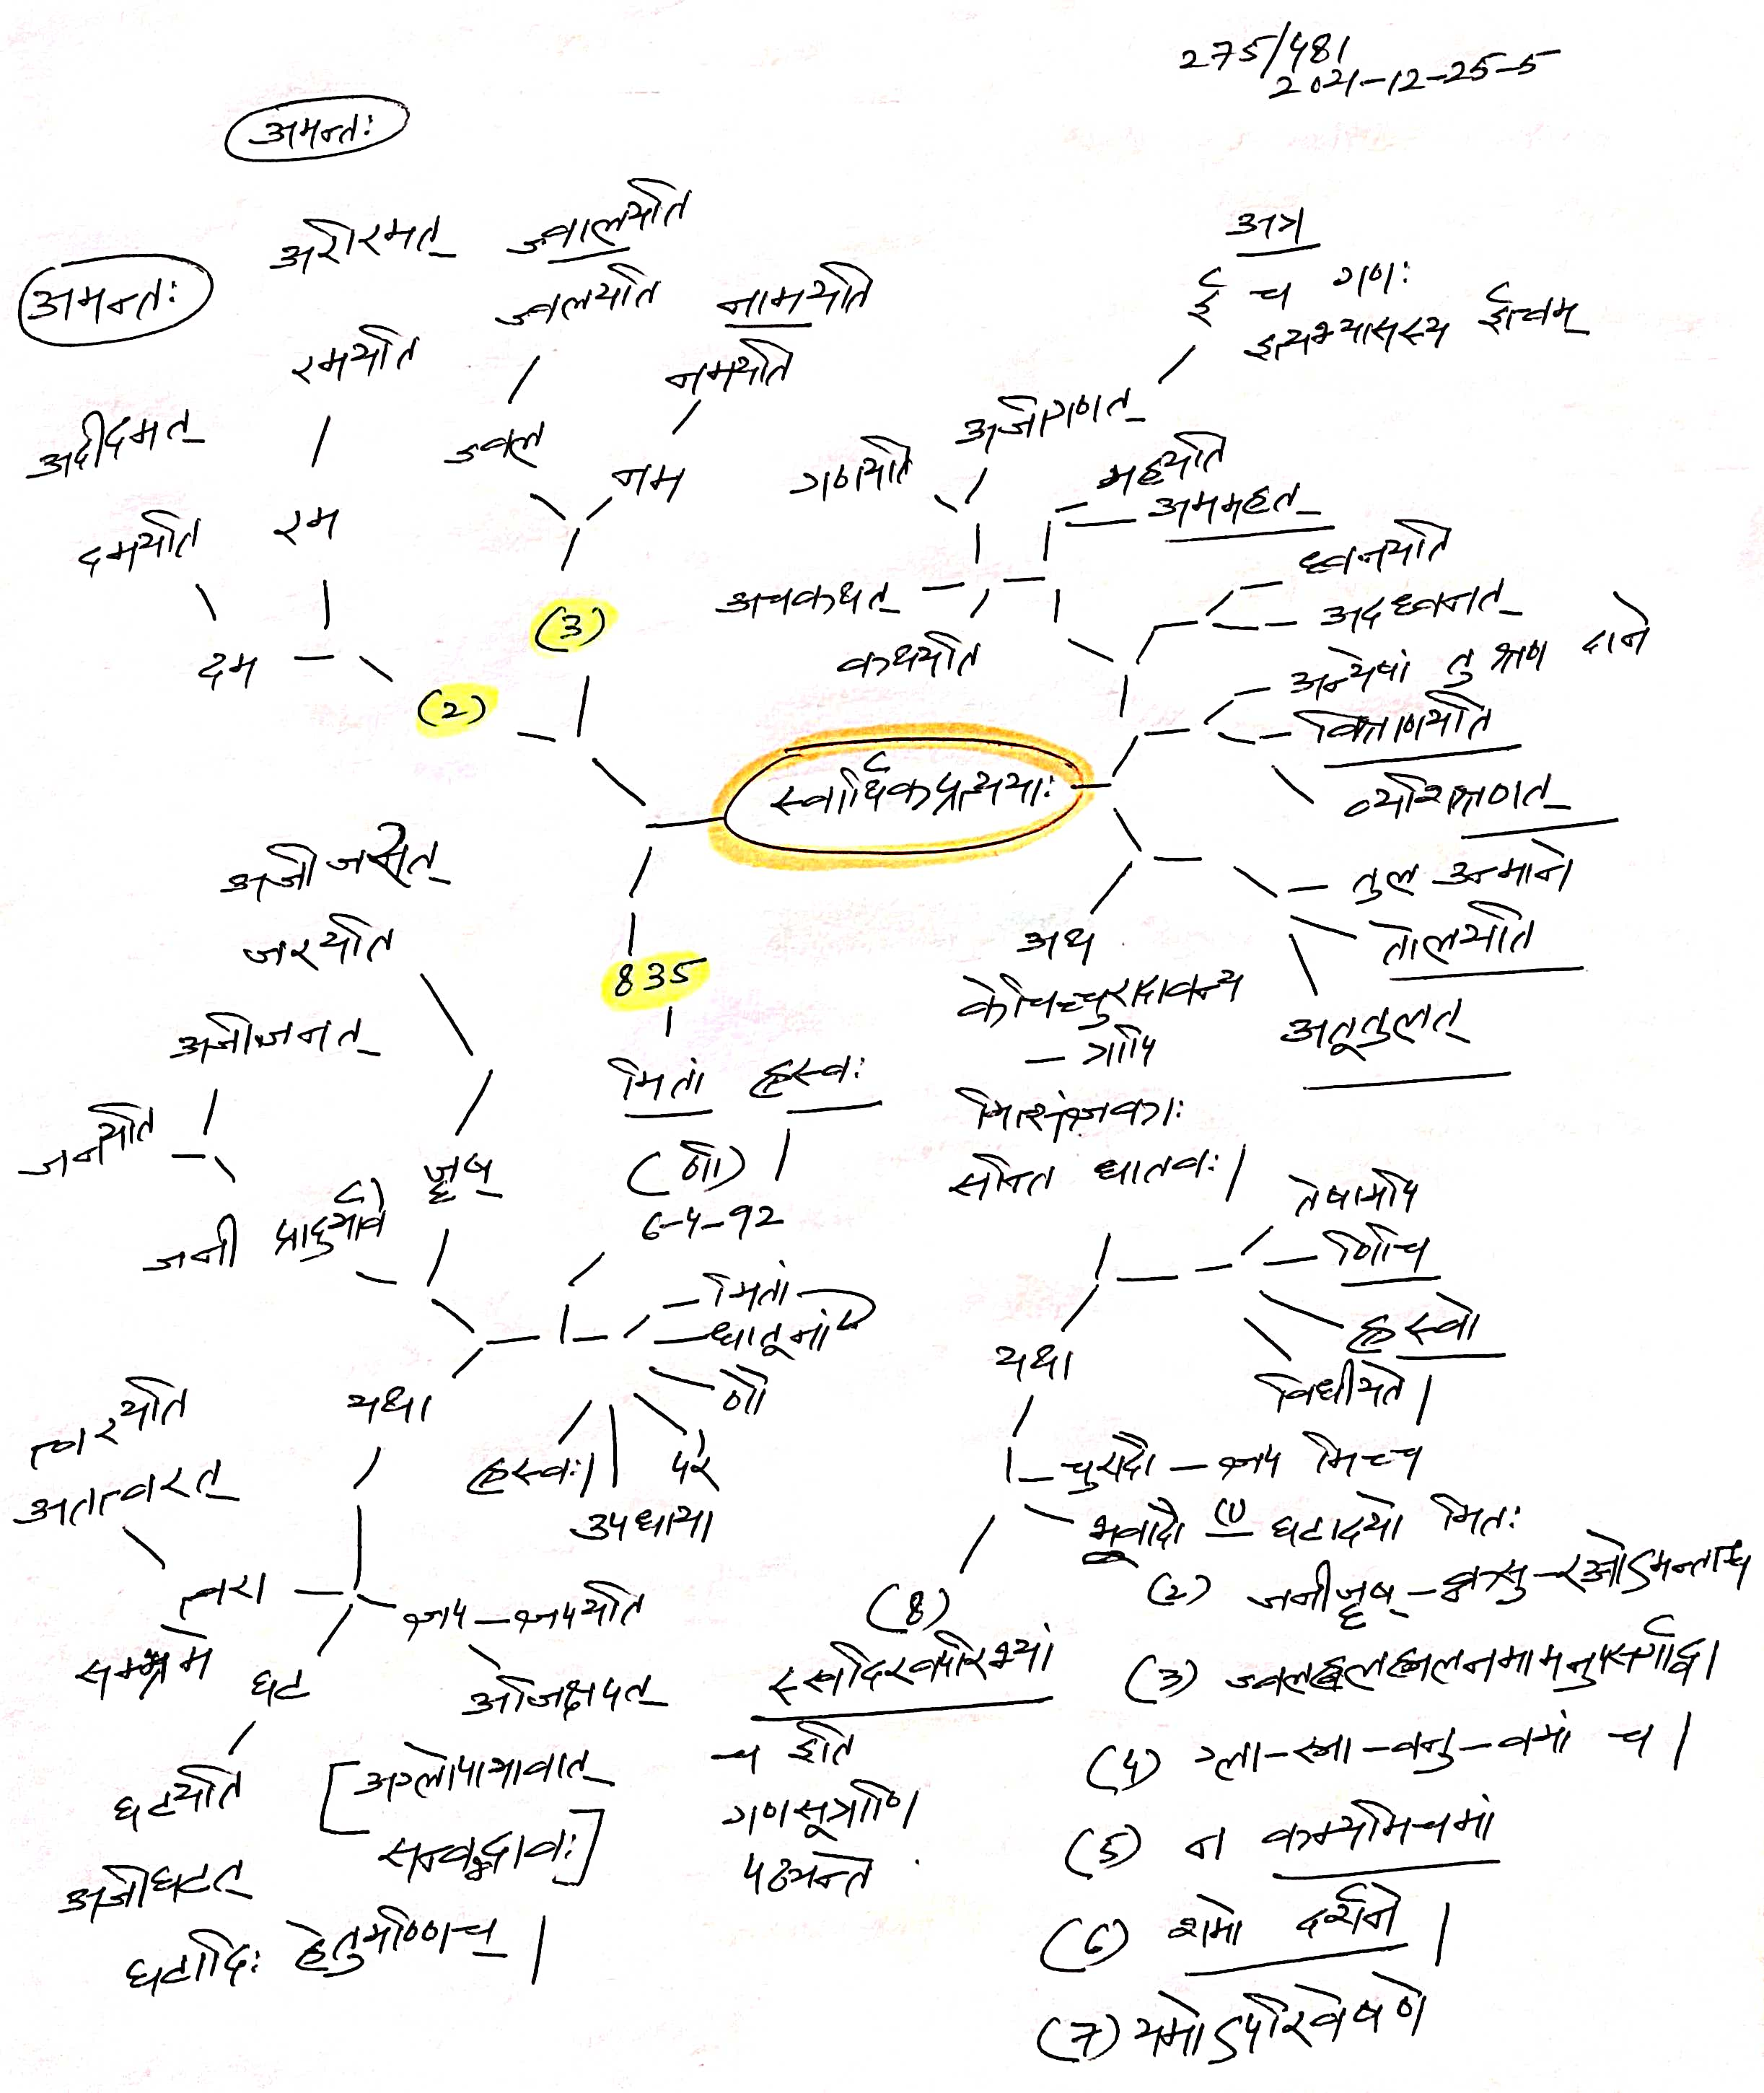 275/481
2021-12-25-5
अमन्तः
अमन्तः
अरीरमत्
रमयति
रम
अदीदमत्
दमयति
दम
(2)
ज्वालयति
ज्वलयति
ज्वल
नामयति
नमयति
नम
(3)
स्वार्थिकप्रत्ययाः
अत्र
ई च गणः
इत्यभ्यासस्य ईत्वम्
अजीगणत्
गणयति
महयति
अममहत्
अचकथत्
कथयति
ध्वनयति
अदध्वनत्
अन्येषां तु श्रण दाने
विश्राणयति
व्यशिश्रणत्
तुल उन्माने
तोलयति
अतूतुलत्
अथ
केचिच्चुरादावन्य
- त्रापि
मित्संज्ञकाः
सन्ति धातवः|
तेषामपि
णिचि
ह्रस्वो
विधीयते|
यथा
चुरादौ - ज्ञप मिच्च
भ्वादौ (1) घटादयो मितः
(2) जनीजॄष्-क्नसु-रञ्जोऽमन्ताश्च
(3) ज्वलह्वलह्मलनमामनुपसर्गाद्वा
(4) ग्ला-स्ना-वनु-वमां च|
(5) न कम्यमिचमां
(6) शमो दर्शने|
(7) यमोऽपरिवेषणे
(8)
स्खदिरवपरिभ्यां
च इति
गणसूत्राणि
पठ्यन्ते
835
मितां ह्रस्वः
(णौ)|
6-4-92
मितां
धातूनां
णौ
परे
उपधाया
ह्रस्वः|
अजीजरत्
जरयति
जॄष्
अजीजनत्
जनयति
जनी प्रादुर्भावे
यथा
त्वरयति
अतत्वरत्
त्वरा
सम्भ्रमे
ज्ञप-ज्ञपयति
अजिज्ञपत्
घट
घटयति
अजीघटत्
[अग्लोपाभावात्
सन्वद्भावः]
घटादिः हेतुमण्णिच्|